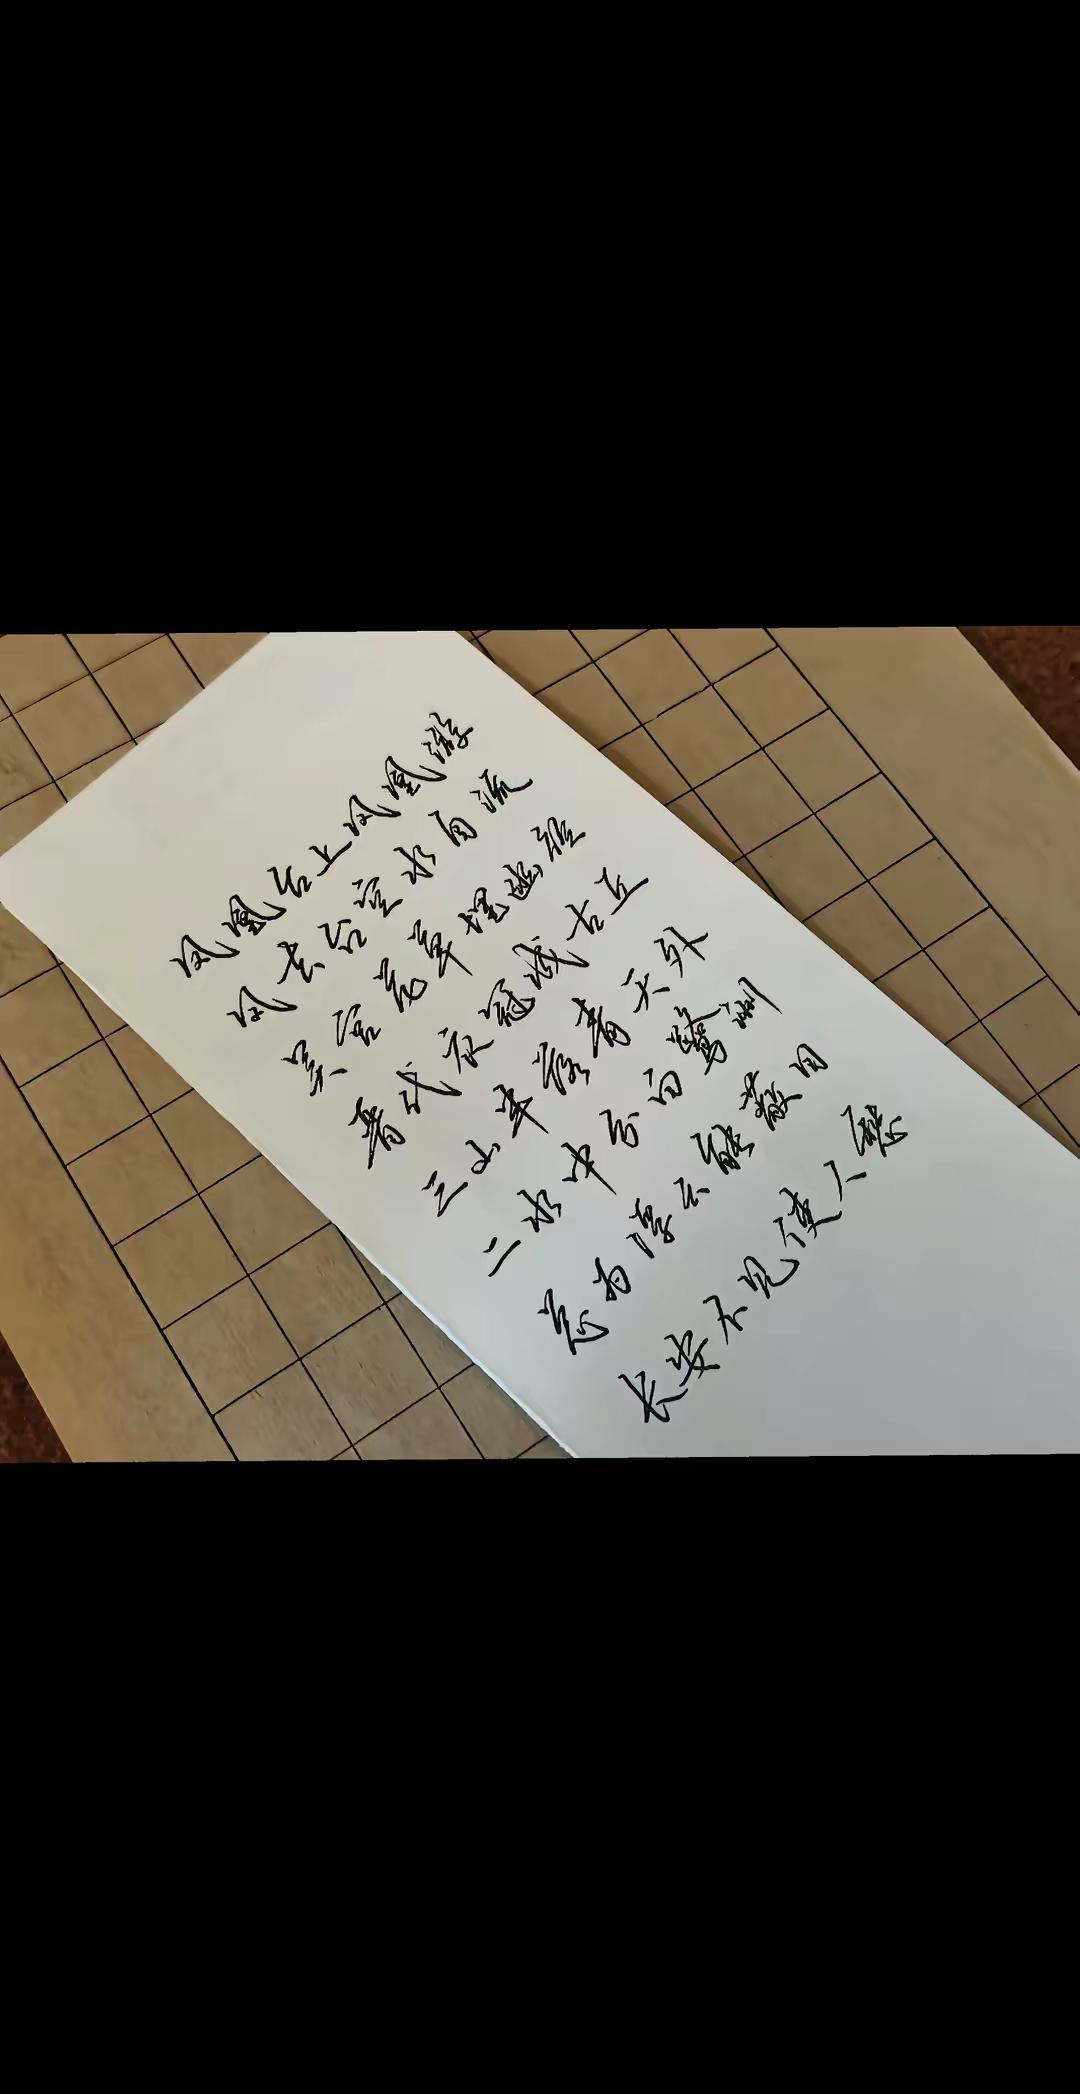 凤凰台上凤凰游
凤去台空水自流
吴宫花草埋幽径
晋代衣冠成古丘
三山半落青天外
二水中分白鹭洲
总为浮云能蔽日
长安不见使人愁